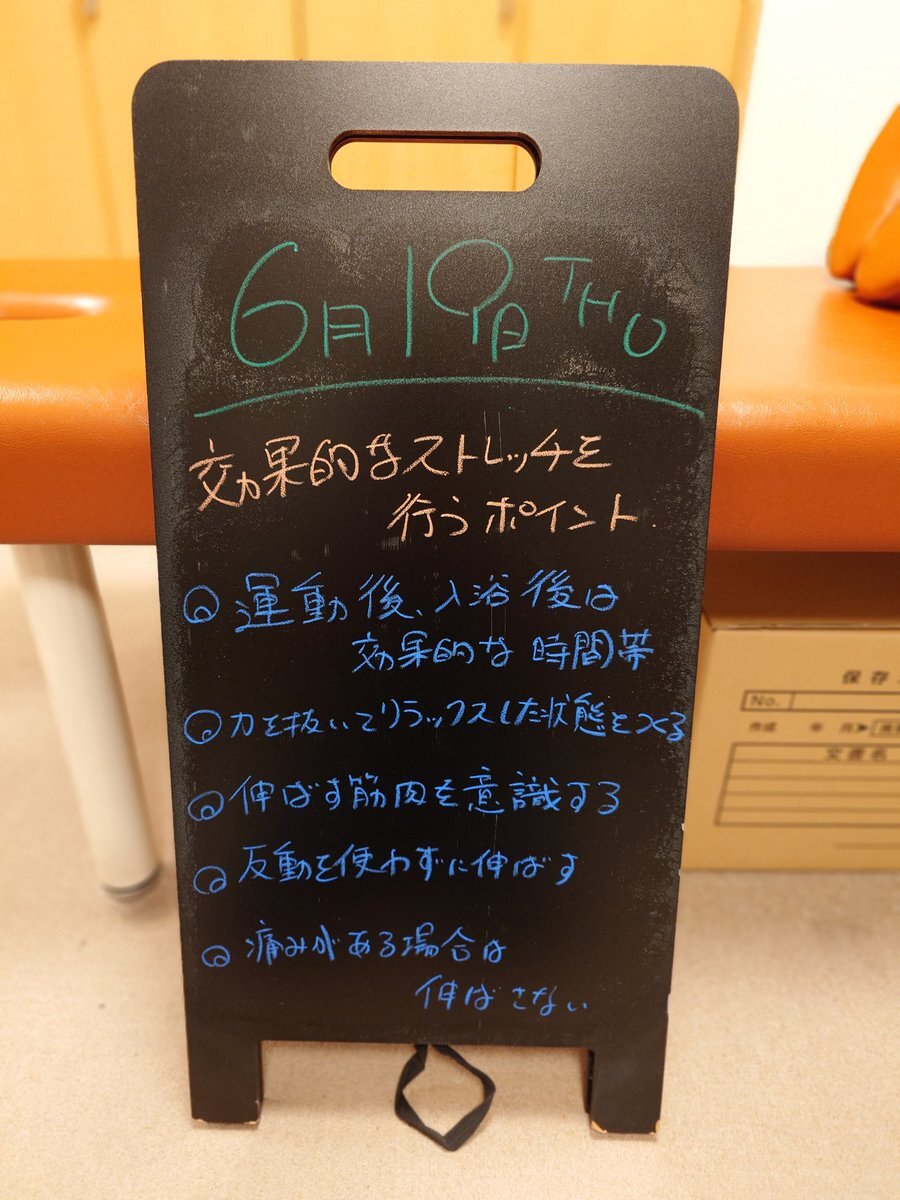 6月19日 THU
効果的なストレッチを
行うポイント.
運動後、入浴後は
効果的な時間帯
力を抜いてリラックスした状態をつくる
伸ばす筋肉を意識する
反動を使わずに伸ばす
痛みがある場合は
伸ばさない
保存
No.
作成 年 月
文書名